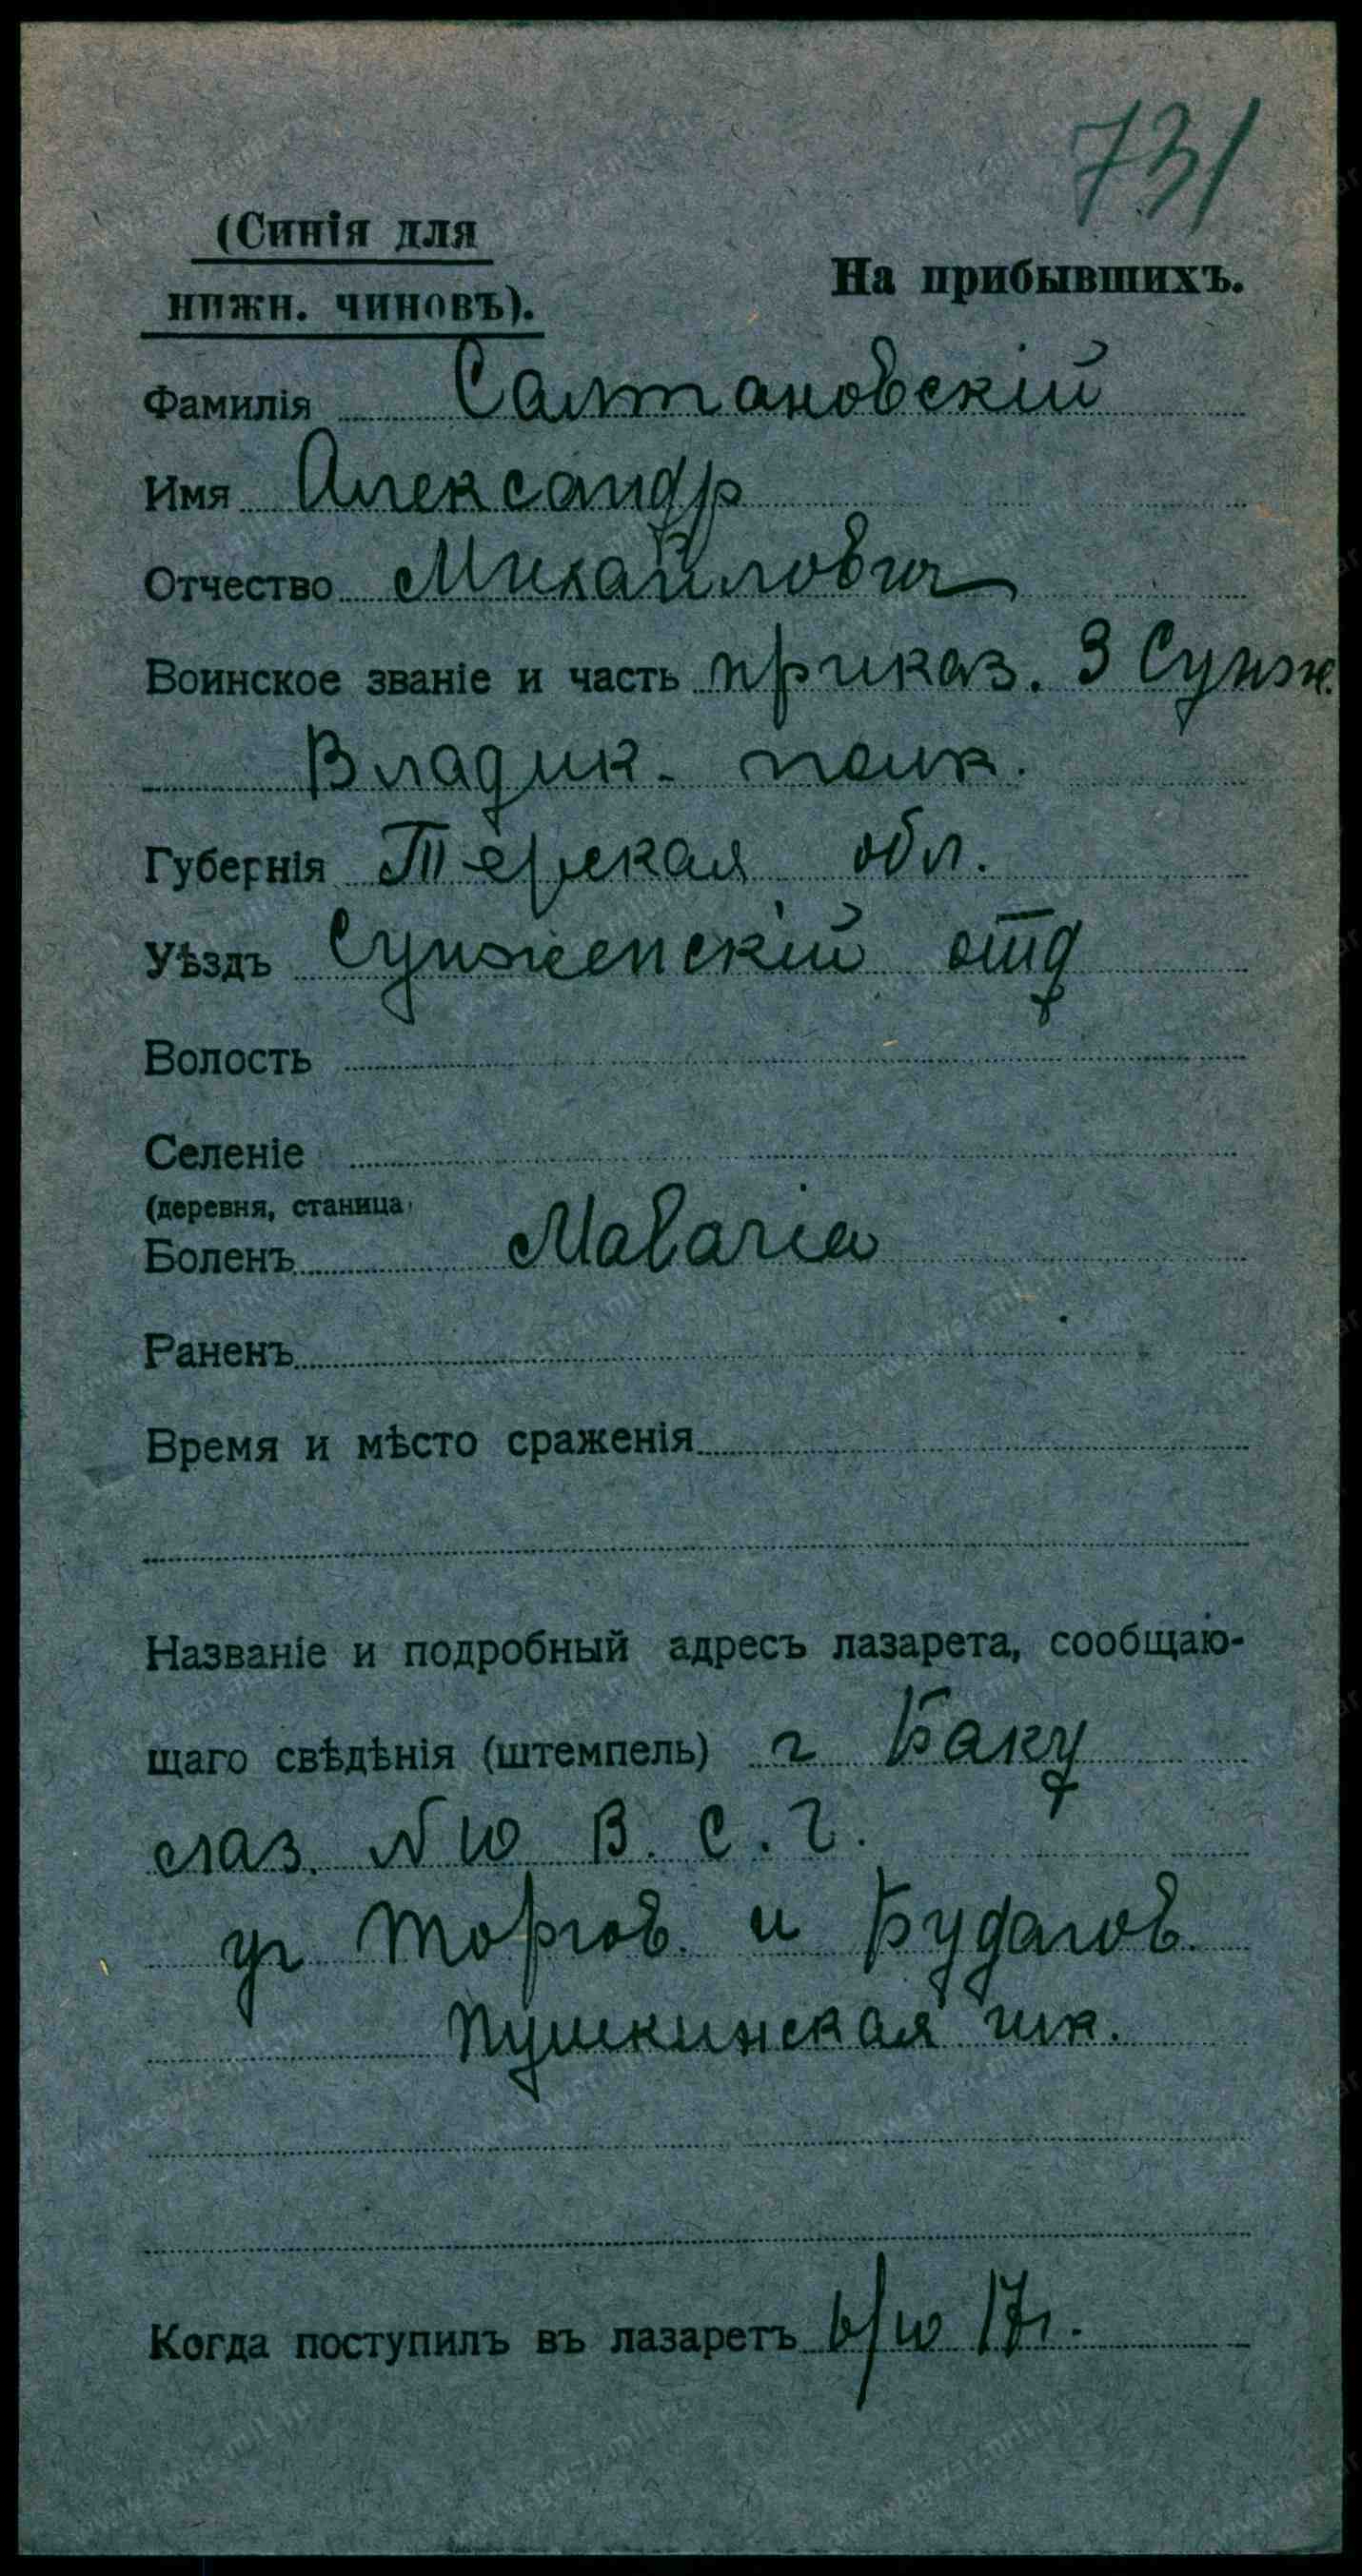 731
(Синія для
нижн. чиновъ).
На прибывшихъ.
Фамилія Салтановскій
Имя Александр
Отчество Михайлович
Воинское званіе и часть приказ. 3 Сунж.
Владик. полк.
Губернія Терская обл.
Уѣздъ Сунженскій отд
Волость
Селеніе
(деревня, станица)
Боленъ Malaria
Раненъ
Время и мѣсто сраженія
Названіе и подробный адресъ лазарета, сообщаю-
щаго свѣдѣнія (штемпель) г Баку
лаз. № 10 В. С. Г.
уг Торгов. и Будагов.
Пушкинская шк.
Когда поступилъ въ лазаретъ 6/10 17г.